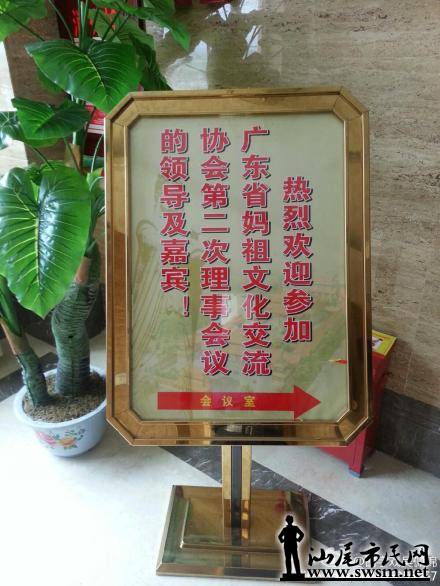 热烈欢迎参加
广东省妈祖文化交流
协会第二次理事会议
的领导及嘉宾！
会议室
汕尾市民网
www.swsm.net